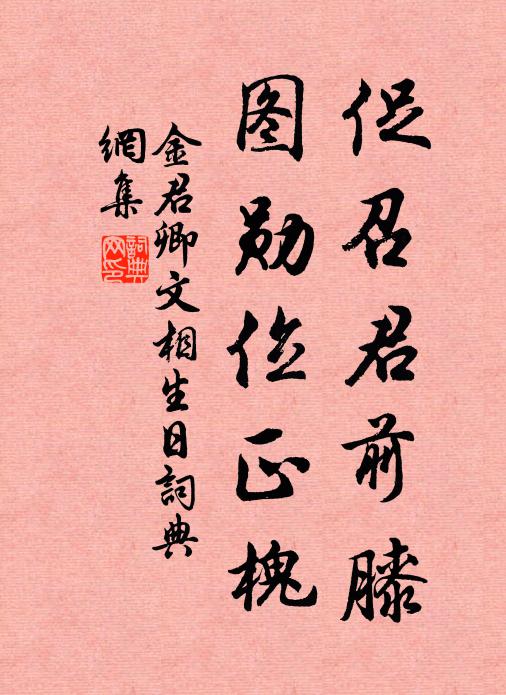 促召君前膝
图勋位正槐
金君卿文相生日詞典
網集
詞典网印